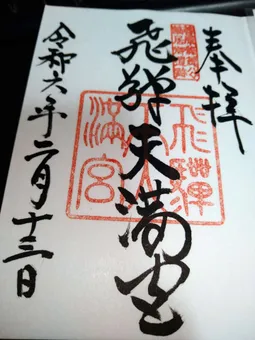 奉拝
飛騨天満宮
飛騨天満宮
令和六年二月十三日